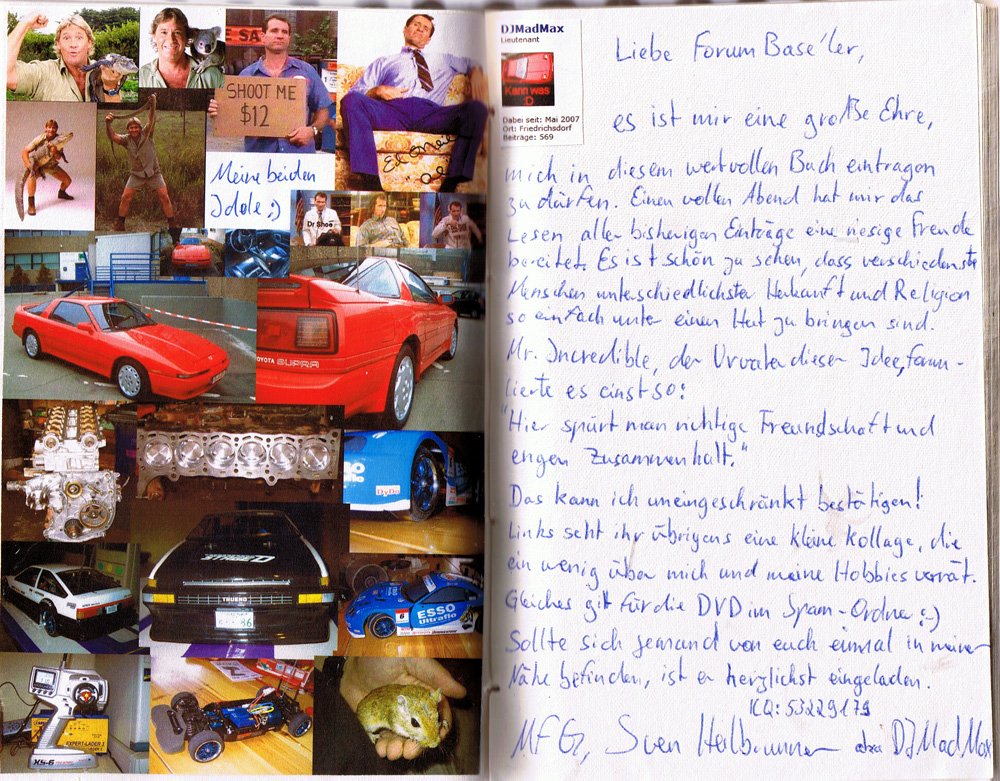 SHOOT ME
$12
Meine beiden
Idole ;)
Dr Shoe
TOYOTA SUPRA
ESSO
DyDo
TRUENO
86
ESSO
Ultraflo
6
EXPERT LADER
DJMadMax
Lieutenant
Kann was
:D
Dabei seit: Mai 2007
Ort: Friedrichsdorf
Beiträge: 569
Liebe Forum Base'ler,
es ist mir eine große Ehre,
mich in diesem wertvollen Buch eintragen
zu dürfen. Einen vollen Abend hat mir das
Lesen aller bisherigen Einträge eine riesige Freude
bereitet. Es ist schön zu sehen, dass verschiedenste
Menschen unterschiedlichster Herkunft und Religion
so einfach unter einen Hut zu bringen sind.
Mr. Incredible, der Urvater dieser Idee, formu-
lierte es einst so:
"Hier spürt man richtige Freundschaft und
engen Zusammenhalt."
Das kann ich uneingeschränkt bestätigen!
Links seht ihr übrigens eine kleine Kollage, die
ein wenig über mich und meine Hobbies verrät.
Gleiches gilt für die DVD im Spam-Ordner ;-)
Sollte sich jemand von euch einmal in meiner
Nähe befinden, ist er herzlichst eingeladen.
ICQ: 53229179
MFG, Sven aka DJMadMax